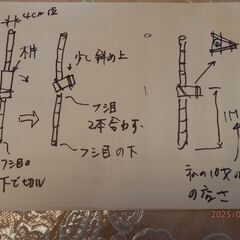 4cm位
木枠
少し斜め上
フシ目
2本合わす
フシ目の下
フシ目の
下で切ル
1M
私の
の高さ
2025/0